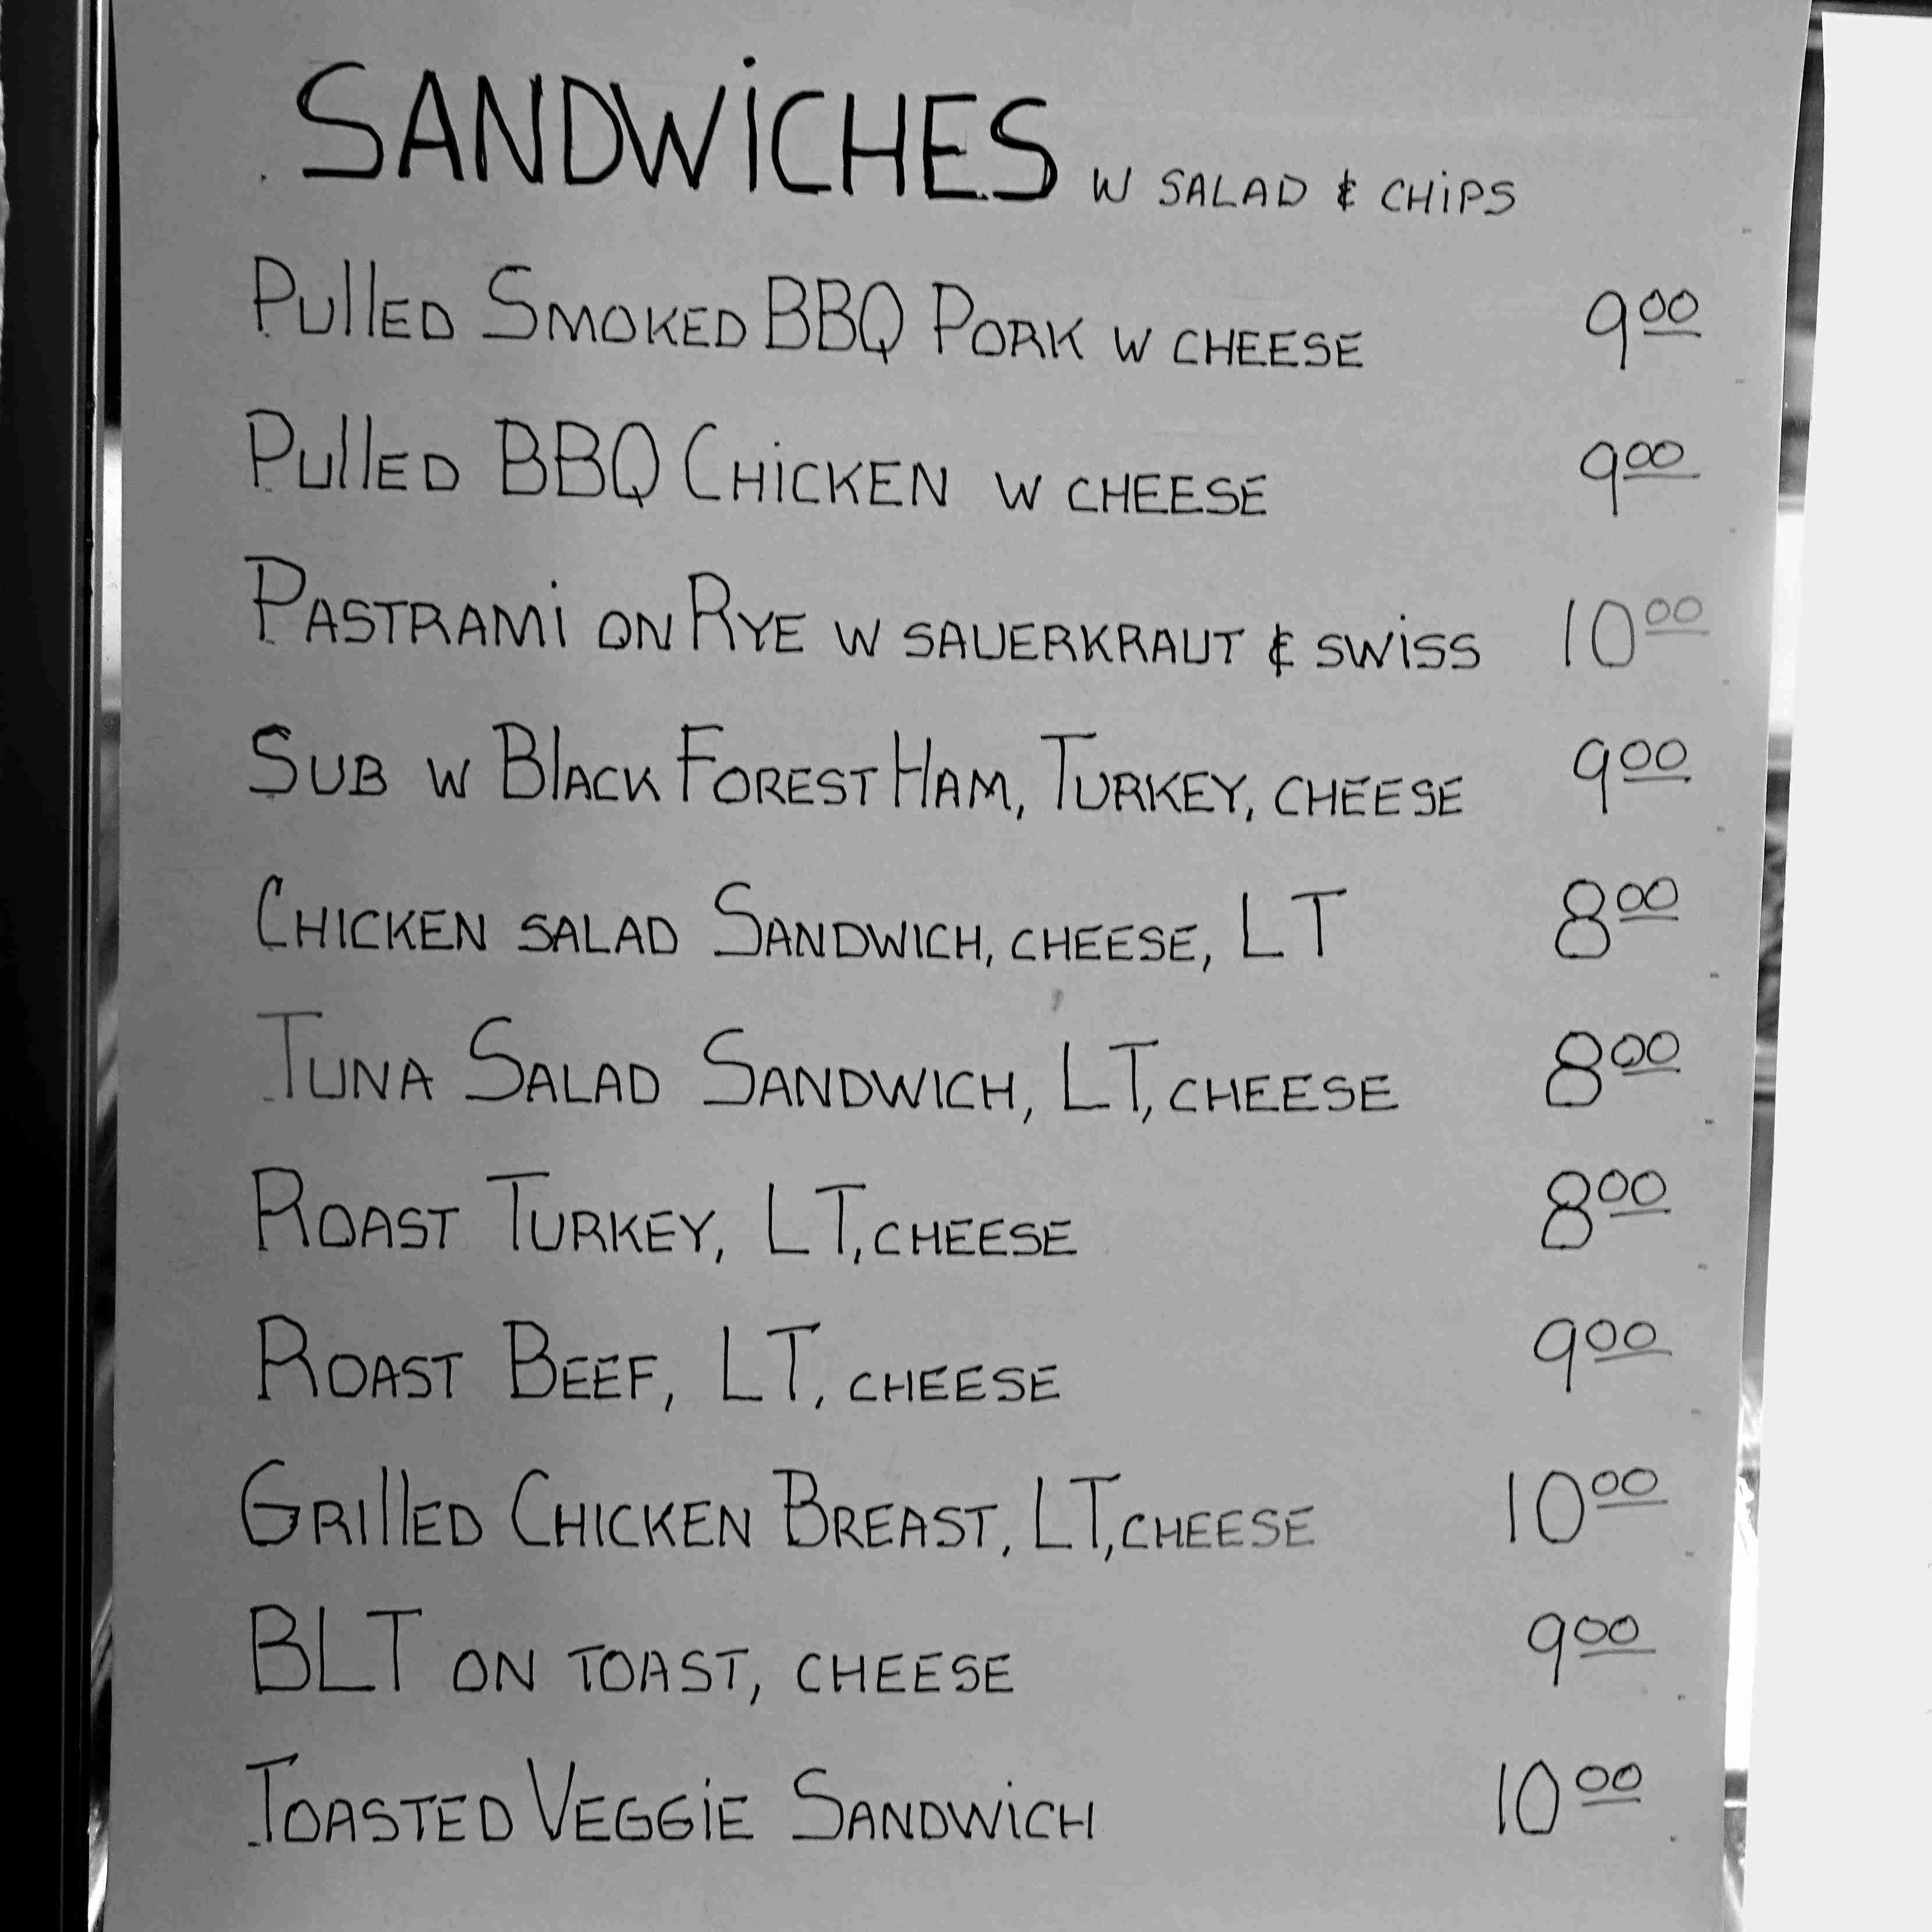 SANDWiCHES W SALAD & CHiPS
PUllED SMOKED BBQ PORK W CHEESE 900
PUllED BBQ CHiCKEN W CHEESE 900
PASTRAMi ON RYE W SAUERKRAUT & SWiSS 1000
SUB W BlACK FOREST HAM, TURKEY, CHEESE 900
CHICKEN SALAD SANDWICH, CHEESE, LT 800
TUNA SALAD SANDWICH, LT, CHEESE 800
ROAST TURKEY, LT, CHEESE 800
ROAST BEEF, LT, CHEESE 900
GRIllED CHICKEN BREAST, LT, CHEESE 1000
BLT ON TOAST, CHEESE 900
TOASTED VEGGiE SANDWiCH 1000